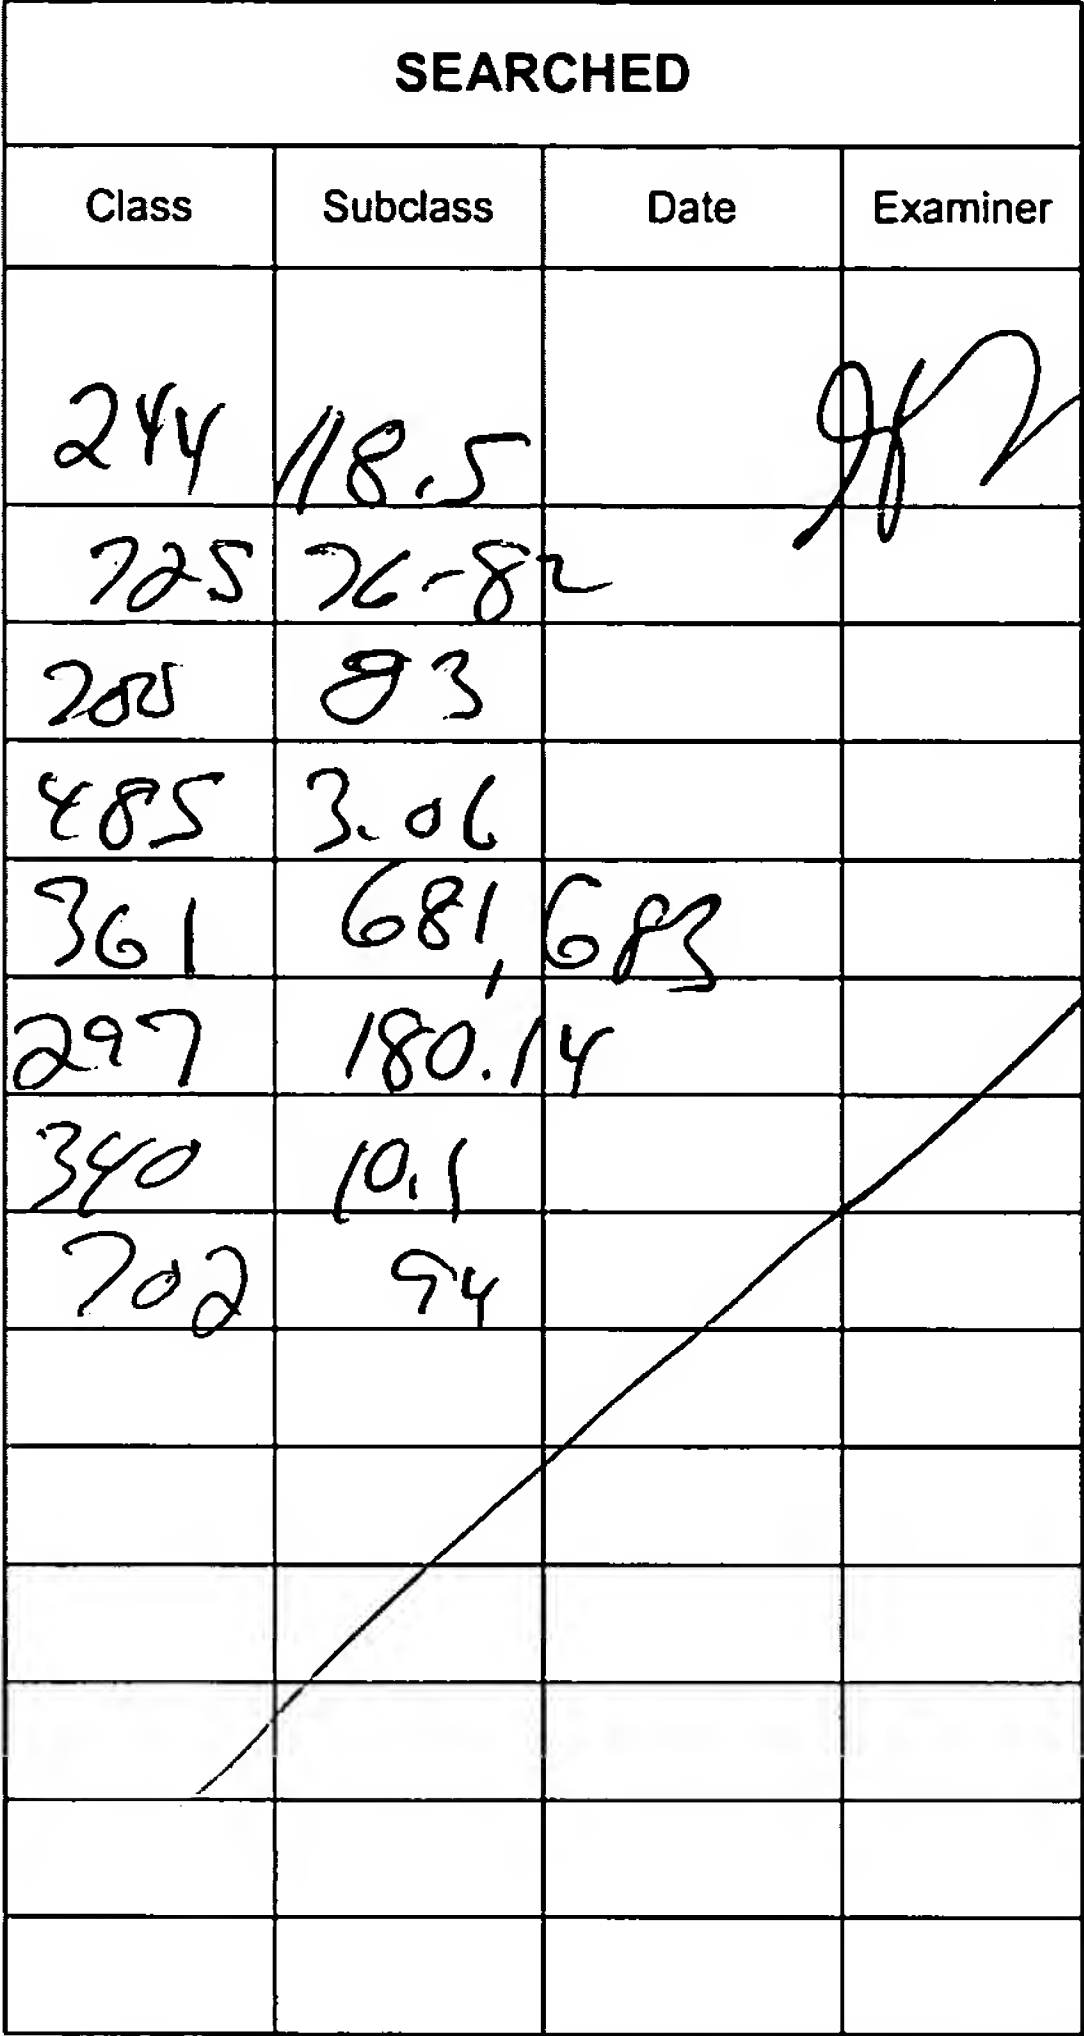 SEARCHED
Class Subclass Date Examiner
244 118.5
725 76-82
700 83
485 3.06
361 681, 683
297 180.14
340 10.1
702 94